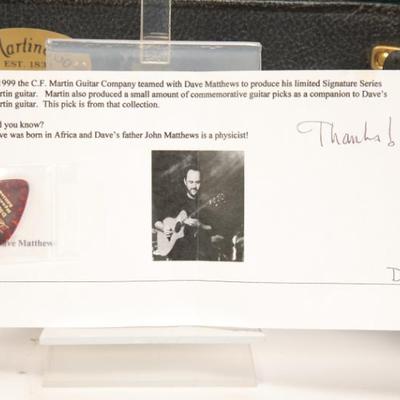 Martin
EST. 183
1999 the C.F. Martin Guitar Company teamed with Dave Matthews to produce his limited Signature Series
rtin guitar. Martin also produced a small amount of commemorative guitar picks as a companion to Dave's
rtin guitar. This pick is from that collection.
d you know?
ve was born in Africa and Dave's father John Matthews is a physicist!
Thanks!
ave Matthews
D